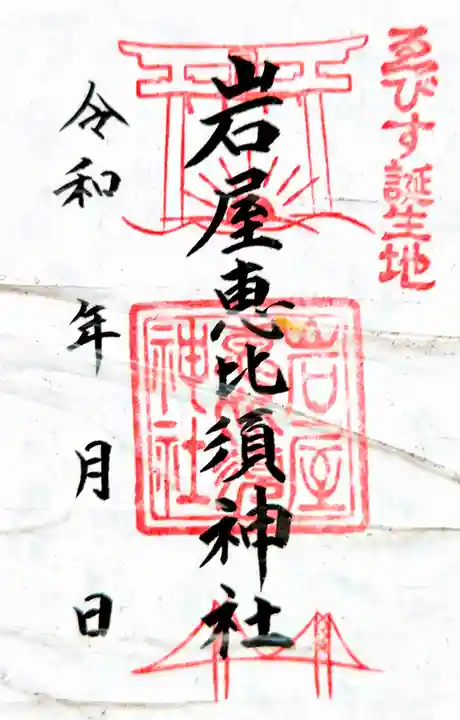 ゑびす誕生地
岩屋恵比須神社
岩屋
神社
令和 年 月 日